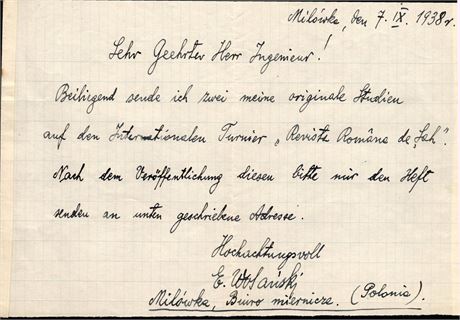 Milówka, den 7. IX. 1938 r.
Sehr Geehrter Herr Ingenieur!
Beiliegend sende ich zwei meine originale Studien
auf den Internationalen Turnier „Revista Româna de Şah".
Nach dem Veröffentlichung diesen bitte mir den Heft
senden an unten geschriebene Adresse.
Hochachtungsvoll
E. Wolański
Milówka, Biuro miernicze. (Polonia).